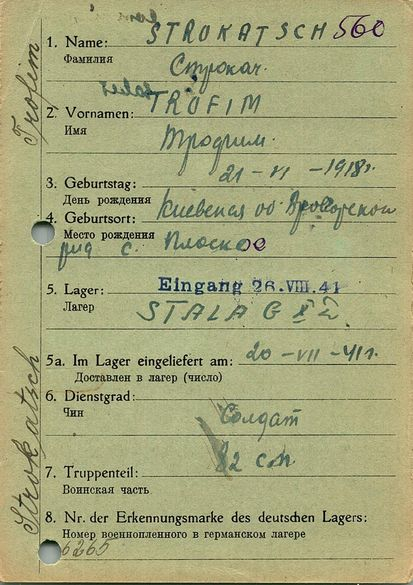 1. Name: STROKATSCH 560
Фамилия Строкач.
2. Vornamen: TROFIM
Имя Трофим.
3. Geburtstag: 21 - VI - 1918г.
День рождения
4. Geburtsort: Киевская об
Место рождения с. Плоское
5. Lager: Eingang 26. VIII. 41
Лагер STALAG
5a. Im Lager eingeliefert am: 20 - VII - 41г.
Доставлен в лагер (число)
6. Dienstgrad:
Чин Солдат
82 сп
7. Truppenteil:
Воинская часть
8. Nr. der Erkennungsmarke des deutschen Lagers:
Номер военнопленного в германском лагере
6265
Trofim
Strokatsch